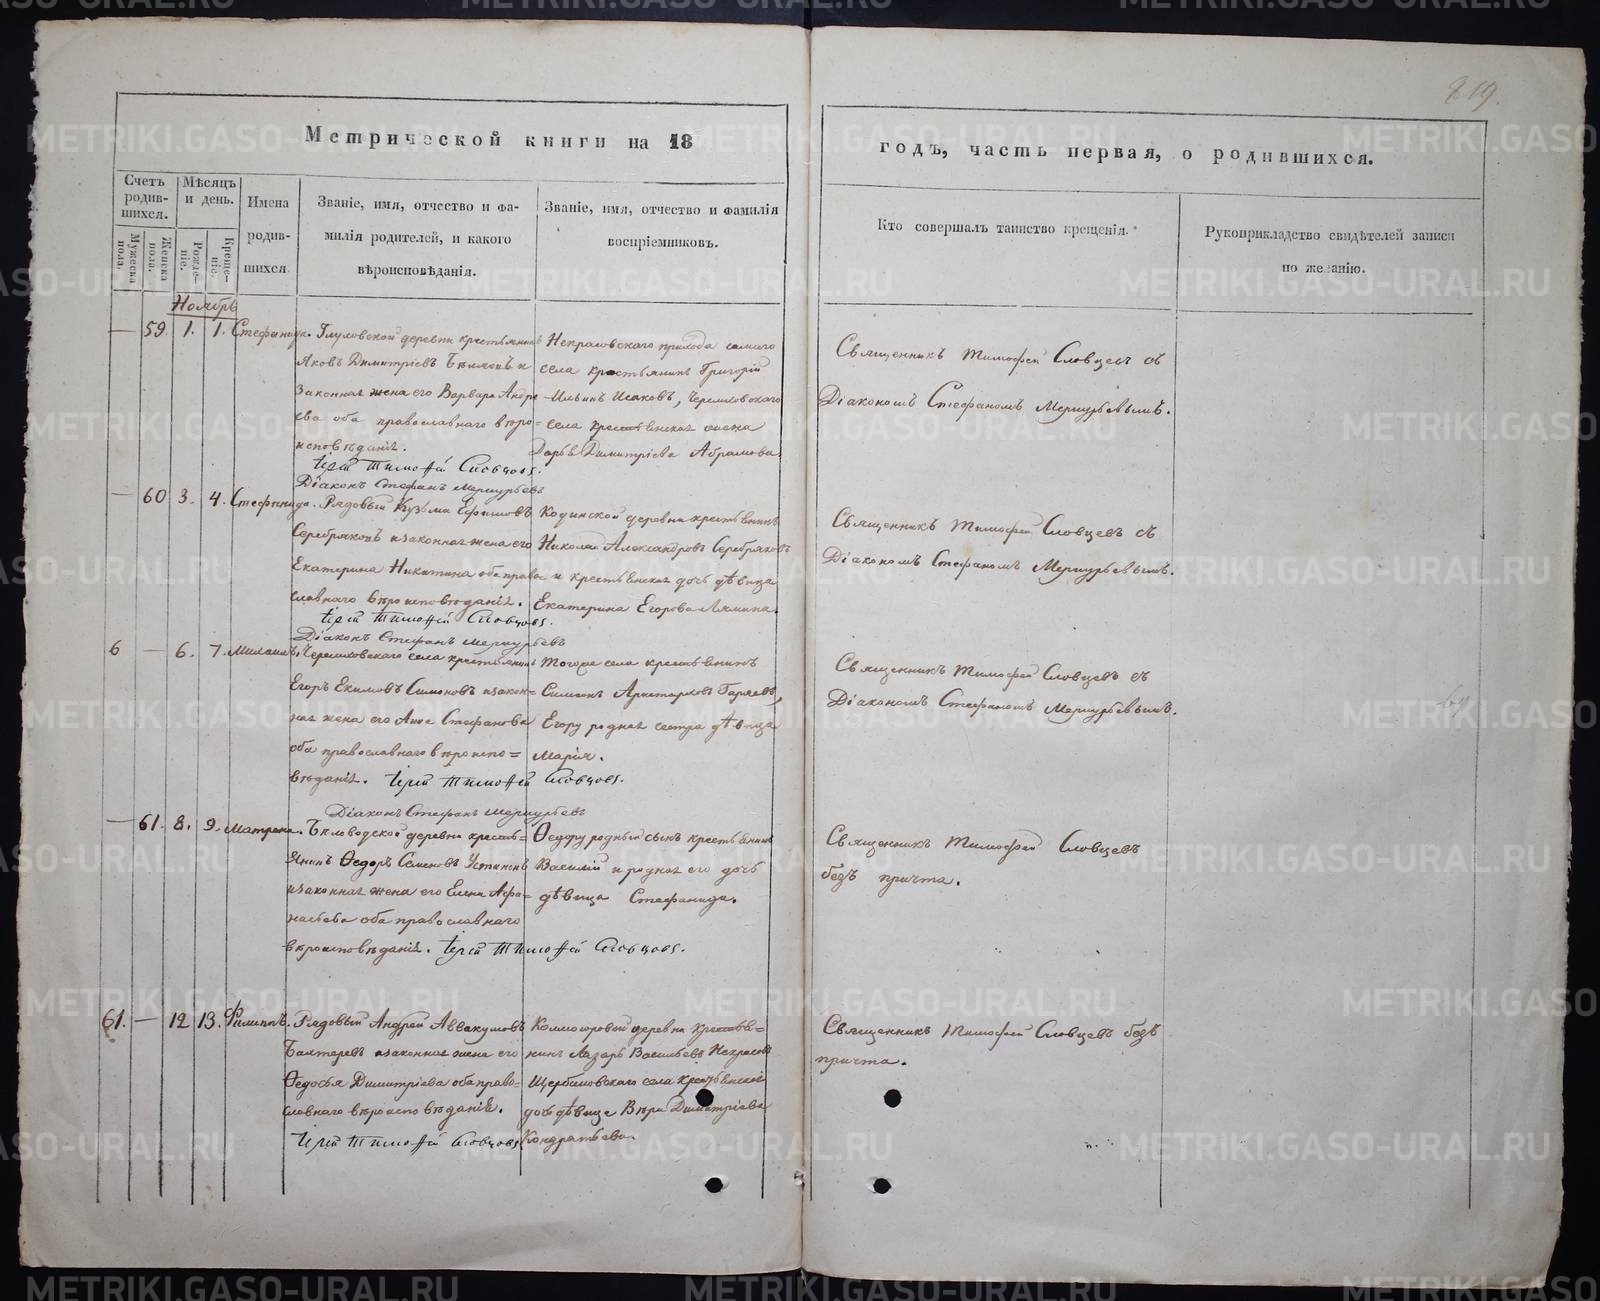 819.
Метрической книги на 18
годъ, часть первая, о родившихся.
Счетъ родив-шихся.
Мѣсяцъ и день.
Имена родив-шихся
Званіе, имя, отчество и фа-
милія родителей, и какого
вѣроисповѣданія.
Званіе, имя, отчество и фамилія
воспріемниковъ.
Кто совершалъ таинство крещенія.
Рукоприкладство свидѣтелей записи
по желанію.
Мужеска пола.
Женска пола.
Рожде-ніе.
Креще-ніе.
Ноябрь
— 59 1. 1. Стефанида.
деревни крестьянинъ
Яковъ Димитріевъ
Законная жена его Варвара Андре
ева оба православнаго вѣро=
исповѣданія.
Іерей Тимоѳей Словцовъ.
Діаконъ Стефанъ Меркурьевъ
Некрасовскаго прихода самаго
села крестьянинъ Григорій
Ильинъ Исаковъ,
села крестьянская
Дарья Димитріева Абрамова
Священникъ Тимофей Словцевъ съ
Діакономъ Стефаномъ Меркурьевымъ.
— 60 3. 4. Стефанида.
Рядовый Кузьма Ефимовъ
Серебряковъ и законная жена его
Екатерина Никитина оба право
славнаго вѣроисповѣданія.
Іерей Тимоѳей Словцовъ.
Діаконъ Стефанъ Меркурьевъ
Кодинской деревни крестьянинъ
Николай Александровъ Серебряковъ
и крестьянская дочь дѣвица
Екатерина Егорова Лямина.
Священникъ Тимофей Словцевъ съ
Діакономъ Стефаномъ Меркурьевымъ.
6 — 6. 7. Михаилъ.
села крестьянинъ
Егоръ Екимовъ Симоновъ и закон=
ная жена его Анна Стефанова
оба православнаго вѣроиспо=
вѣданія. Іерей Тимоѳей Словцовъ.
Діаконъ Стефанъ Меркурьевъ
Тогоже села крестьянинъ
Симеонъ Аристарховъ
Егору родная сестра дѣвица
Марія.
Священникъ Тимофей Словцевъ съ
Діакономъ Стефаномъ Меркурьевымъ.
— 61. 8. 9. Матрена.
Бѣловодской деревни кресть=
янинъ Ѳедоръ Семеновъ Устиновъ
и законная жена его Елена Афа=
насьева оба православнаго
вѣроисповѣданія. Іерей Тимоѳей Словцовъ.
Ѳедору родный сынъ крестьянинъ
Василій и родная его дочь
дѣвица Стефанида.
Священникъ Тимофей Словцевъ
безъ причта.
61. — 12 13. Филиппъ.
Рядовый Андрей Аввакумовъ
Бахтеревъ и законная жена его
Ѳедосья Димитріева оба право=
славнаго вѣроисповѣданія.
Іерей Тимоѳей Словцовъ
деревни крестья=
нинъ Лазарь Васильевъ Некрасовъ
Щербаковскаго села крестьянской
дочь дѣвица Вѣра Димитріева
Кондратьева.
Священникъ Тимофей Словцевъ безъ
причта.
METRIKI.GASO-URAL.RU